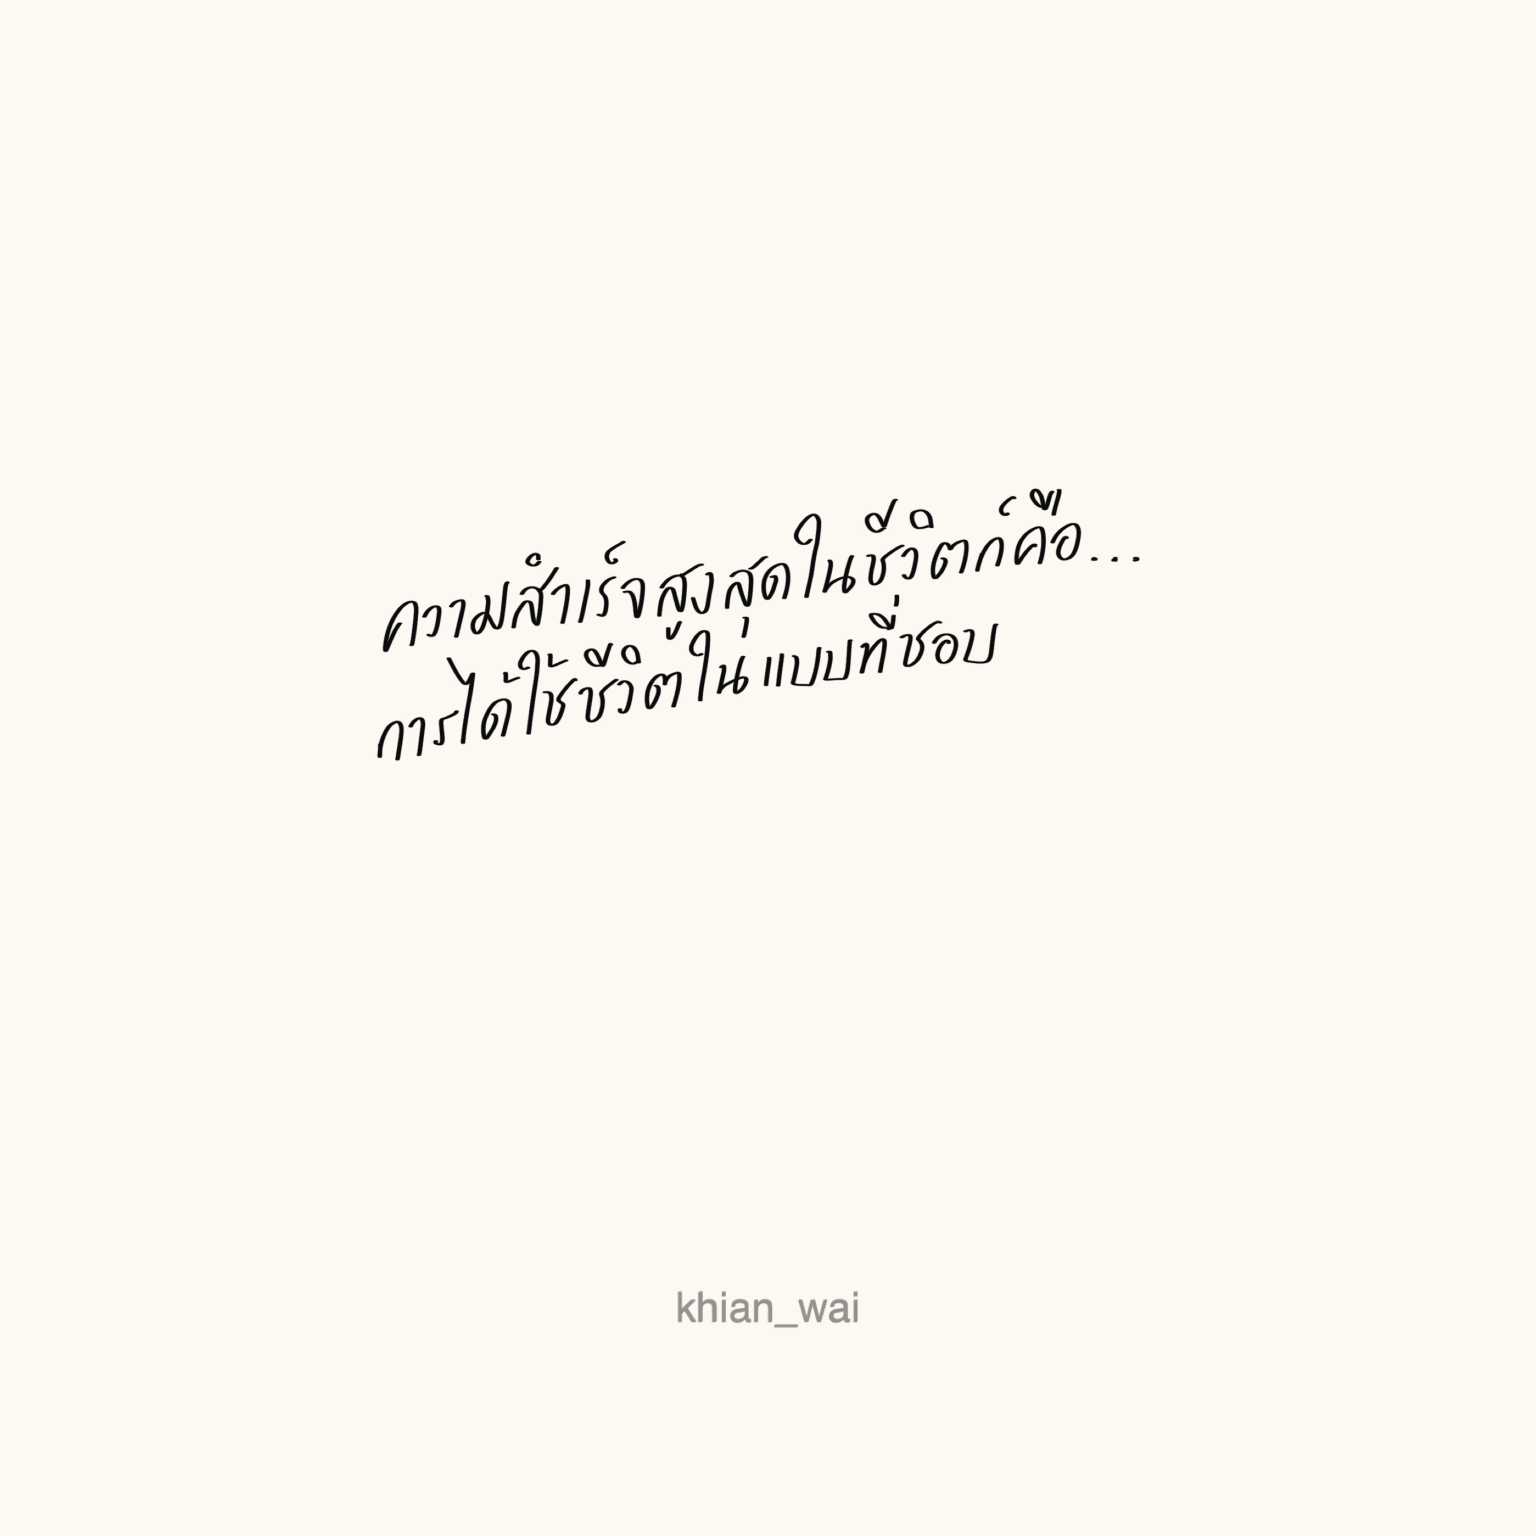 ความสำเร็จสูงสุดในชีวิตก็คือ...
การได้ใช้ชีวิตในแบบที่ชอบ
khian_wai